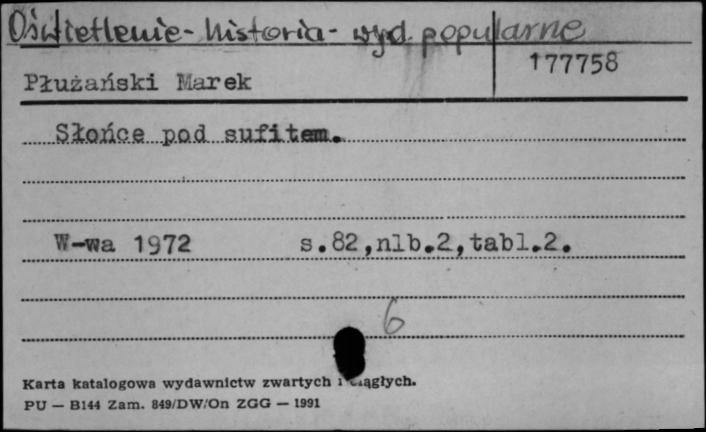 Oświetlenie - historia - wyd. popularne
177758
Płużański Marek
Słońce pod sufitem.
W-wa 1972 s.82,nlb.2,tabl.2.
6
Karta katalogowa wydawnictw zwartych i ciągłych.
PU — B144 Zam. 849/DW/On ZGG — 1991